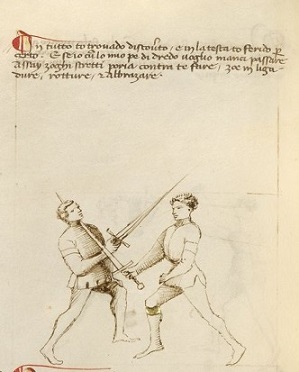 In tutto to trovado discoverto, e in la testa to ferido per
certo. E se io cum lo mio pe di dredo voglio innanci passare
assay zoghi stretti poria contra te fare, zoe in liga
dure, rotture, e abbrazare.